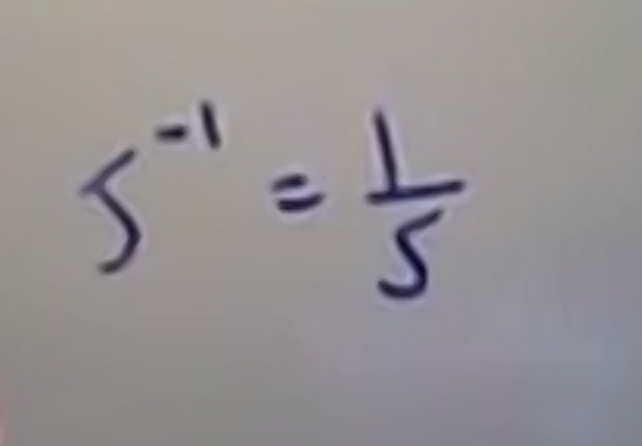 5⁻¹ = 1/5